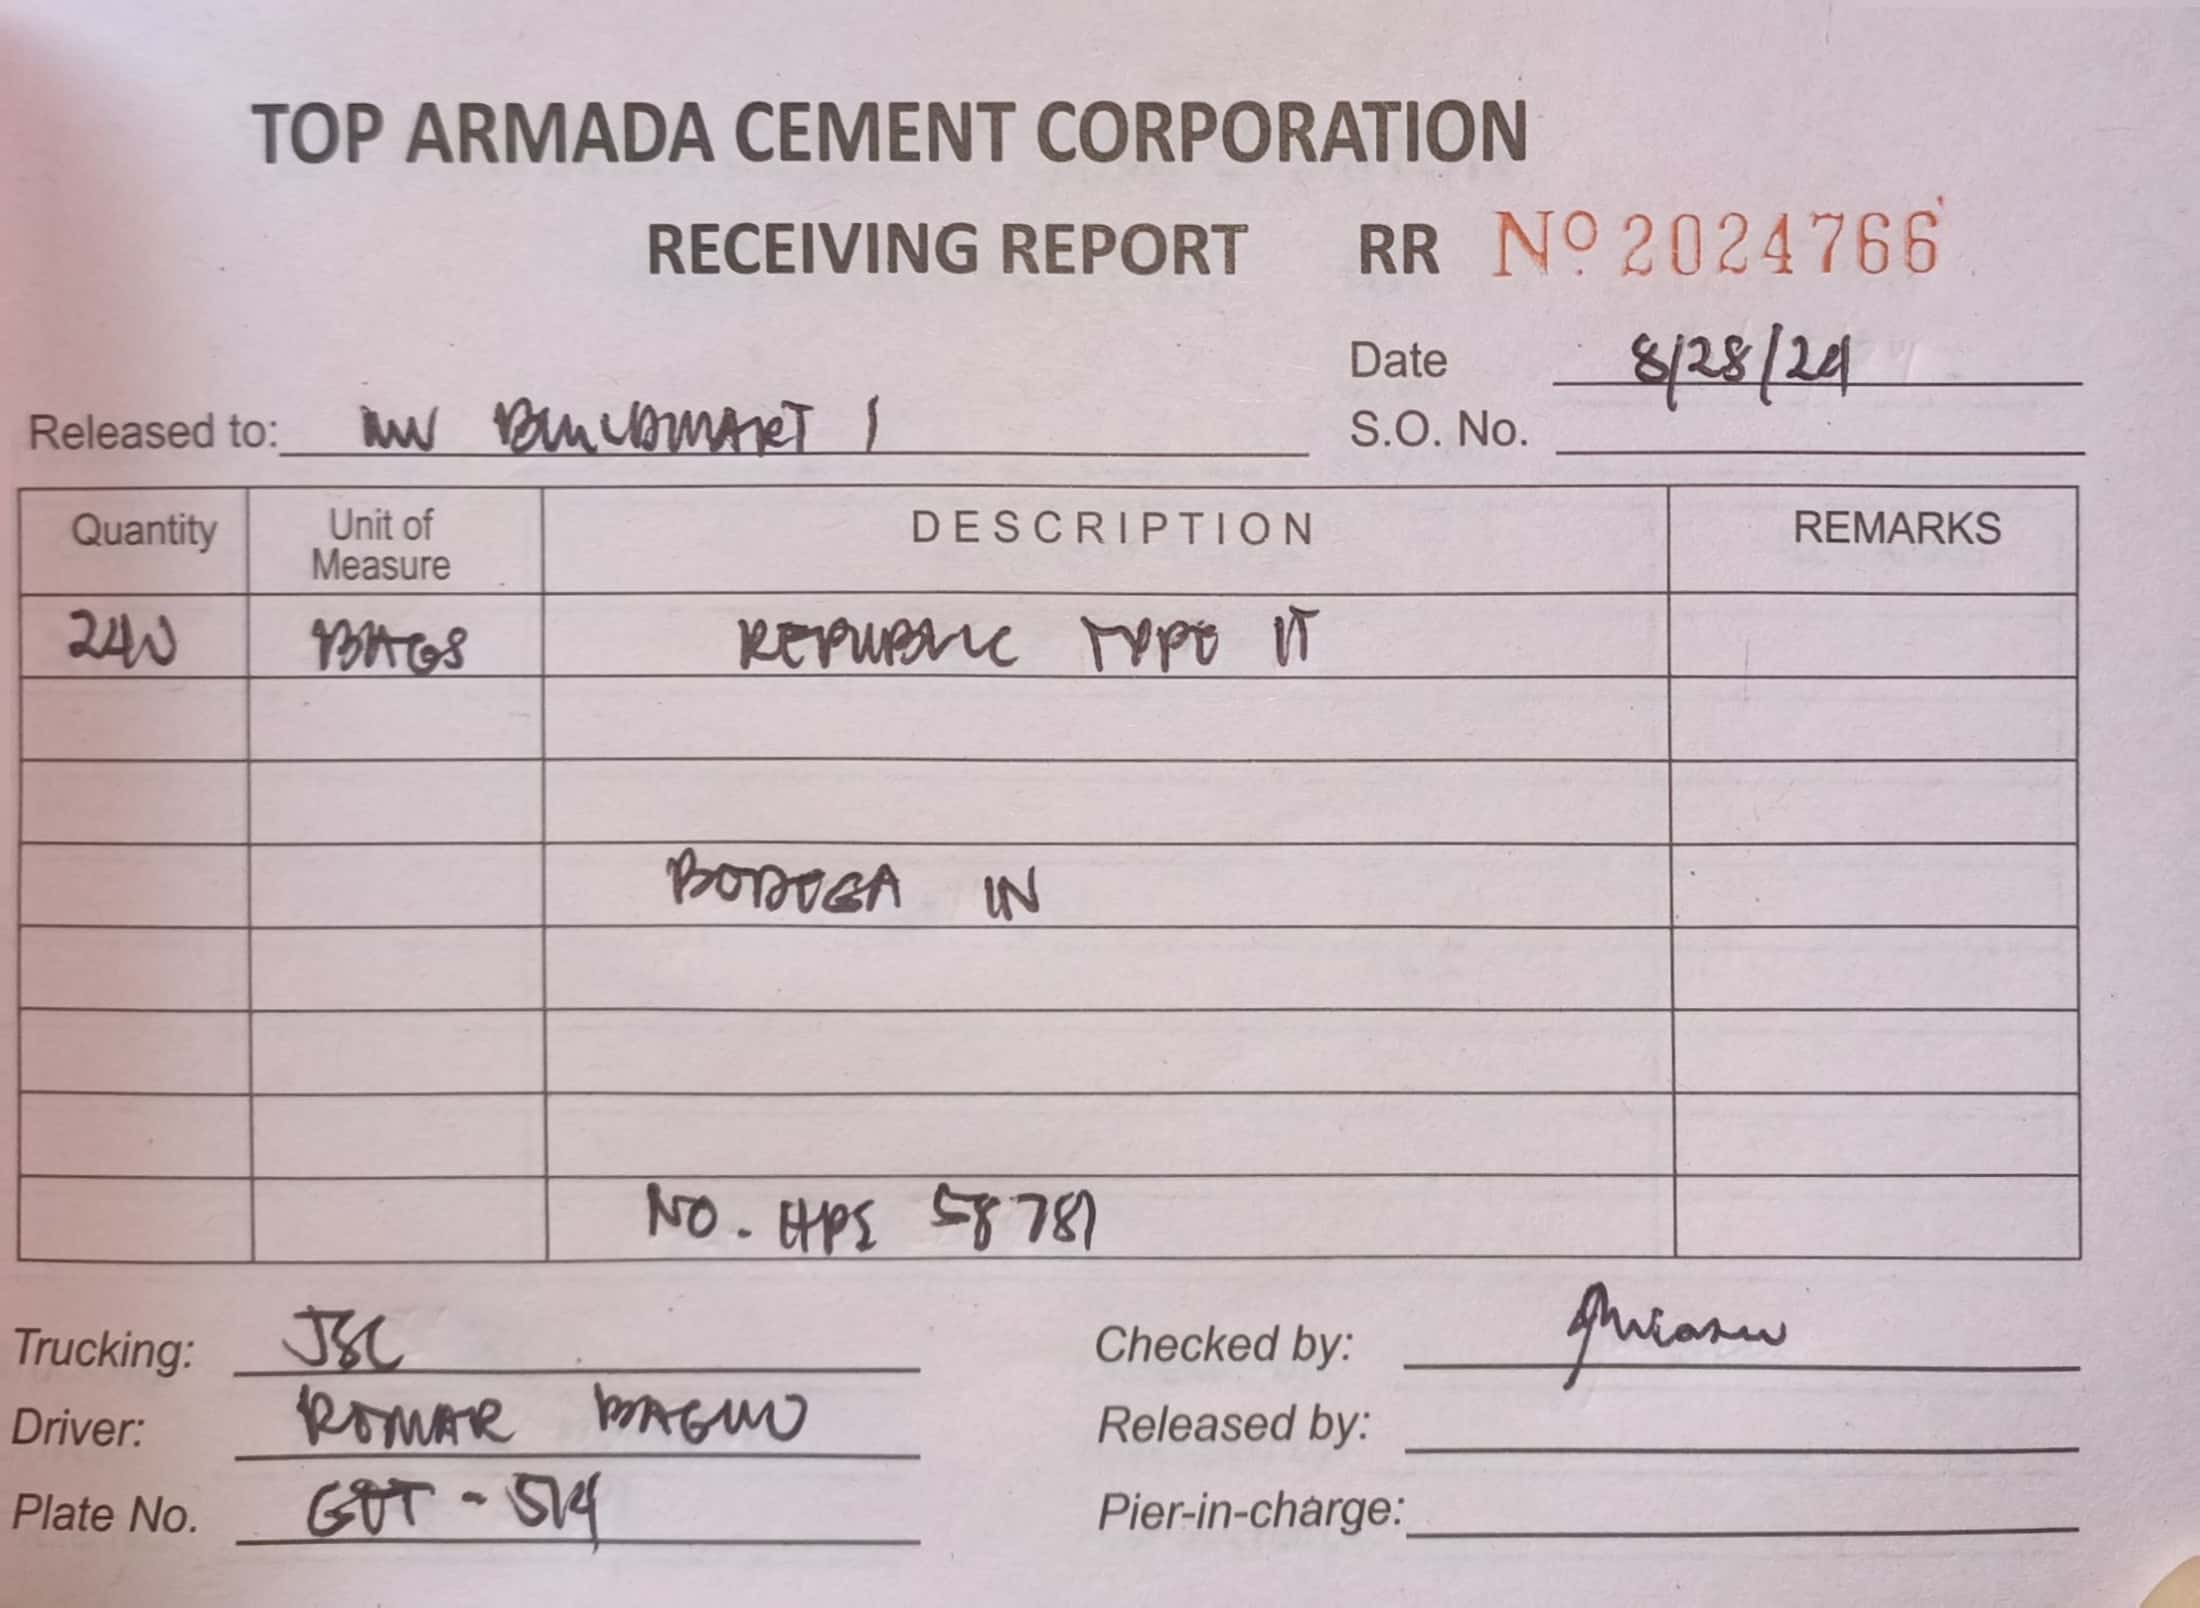 TOP ARMADA CEMENT CORPORATION
RECEIVING REPORT RR Nº 2024766
Date 8/28/24
Released to: 1
S.O. No.
Quantity Unit of Measure DESCRIPTION REMARKS
240 BAGS REPUBLIC TYPE 1T
BODEGA IN
NO. HPS 58781
Trucking: JSC
Checked by:
Driver: ROMAR BAGUIO
Released by:
Plate No. - 514
Pier-in-charge: